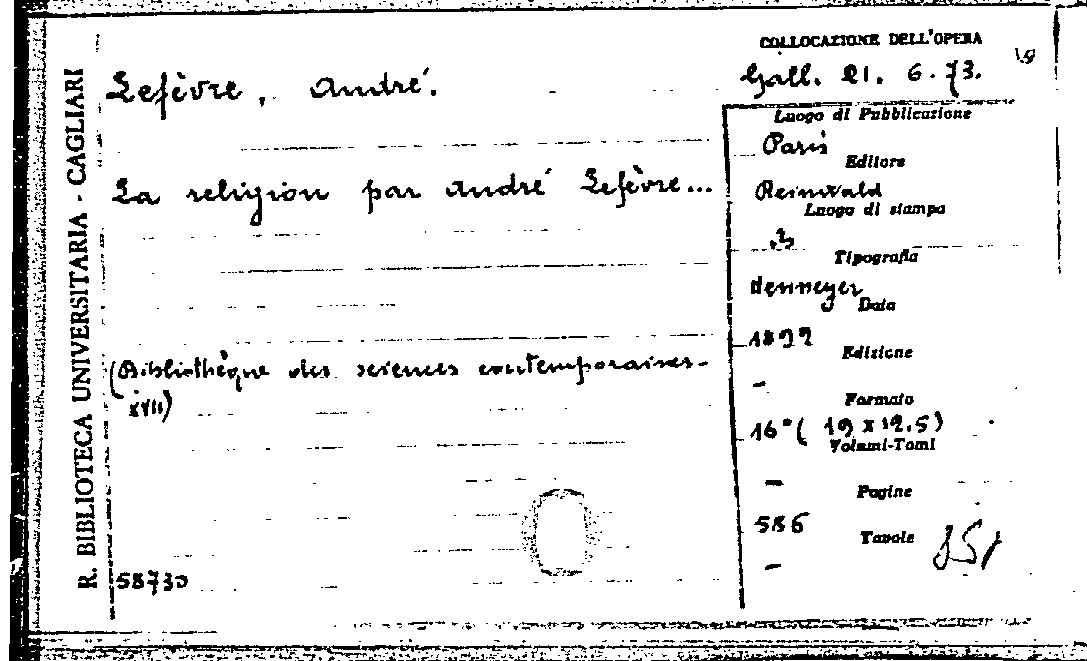 R. BIBLIOTECA UNIVERSITARIA - CAGLIARI
Lefèvre, André.
La religion par André Lefèvre...
(Bibliothèque des sciences contemporaines-
XVII)
58730
COLLOCAZIONE DELL'OPERA
Gall. 21. 6. 73.
Luogo di Pubblicazione
Paris
Editore
Reinwald
Luogo di stampa
Tipografia
Hennuyer
Data
1892
Edizione
-
Formato
16° ( 19 x 12.5)
Volumi-Tomi
-
Pagine
586
Tavole
-